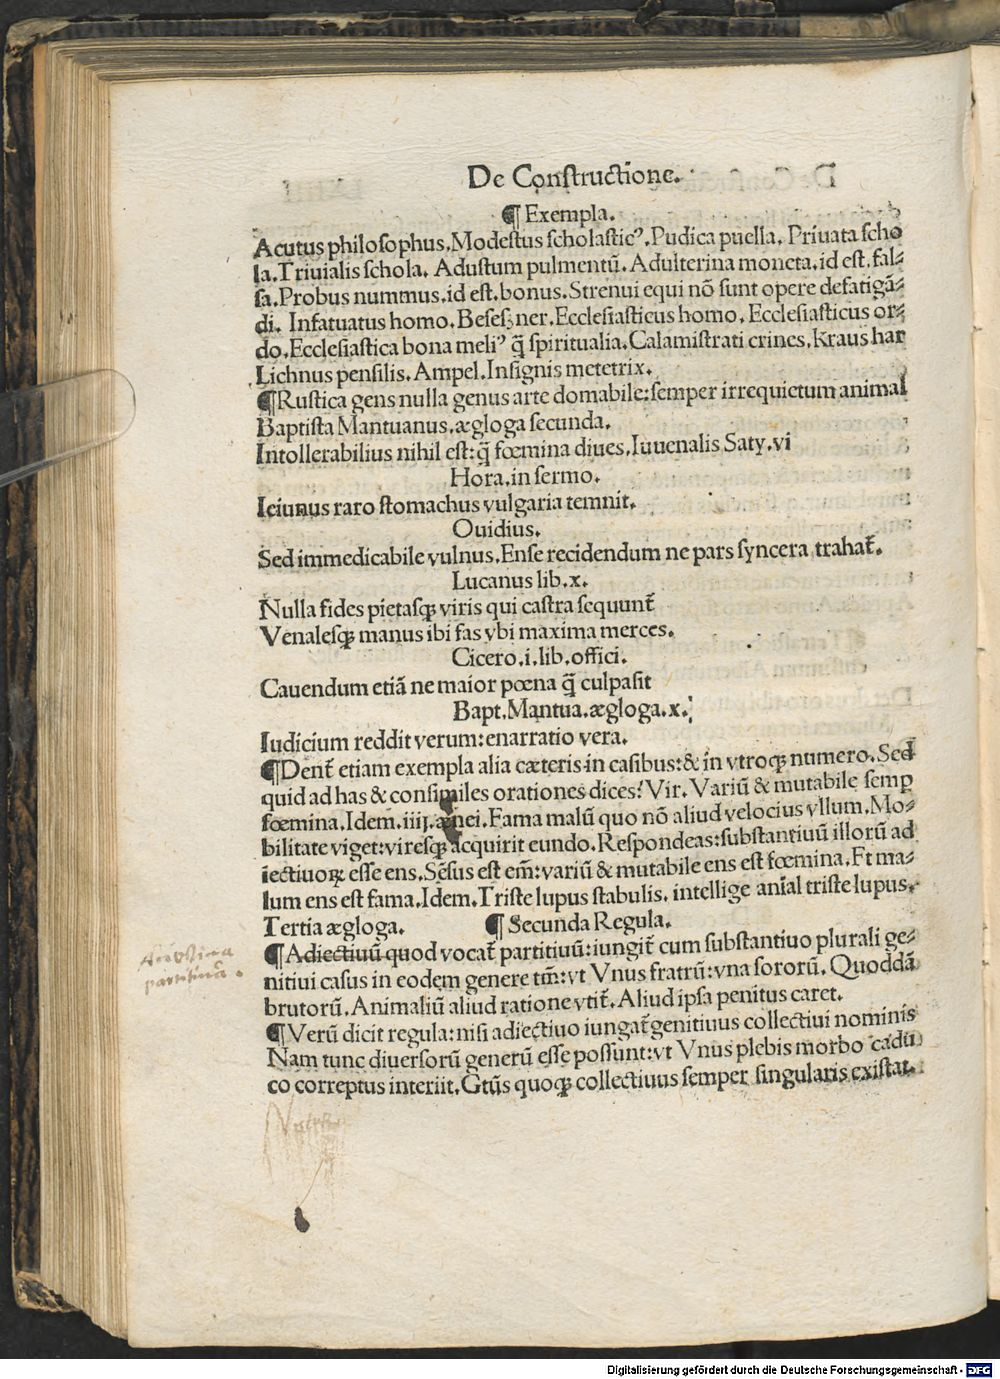 De Constructione.
¶ Exempla.
Acutus philosophus. Modestus scholasticꝰ. Pudica puella. Priuata scho
la. Triuialis schola. Adustum pulmentũ. Adulterina moneta. id est. fal⸗
sa. Probus nummus. id est. bonus. Strenui equi nõ sunt opere defatigã⸗
di. Infatuatus homo. Besesꝫner. Ecclesiasticus homo. Ecclesiasticus or⸗
do. Ecclesiastica bona meliꝰ q̃ spiritualia. Calamistrati crines. Kraus har
Lichnus pensilis. Ampel. Insignis metetrix.
¶ Rustica gens nulla genus arte domabile: semper irrequietum animal
Baptista Mantuanus. ægloga secunda.
Intollerabilius nihil est: q̃ fœmina diues. Iuuenalis Saty. vi
Hora. in sermo.
Ieiunus raro stomachus vulgaria temnit.
Ouidius.
Sed immedicabile vulnus. Ense recidendum ne pars syncera trahat̃.
Lucanus lib. x.
Nulla fides pietasqꝫ viris qui castra sequunt̃
Venalesqꝫ manus ibi fas vbi maxima merces.
Cicero. i. lib. offici.
Cauendum etiã ne maior pœna q̃ culpa sit
Bapt. Mantua. ægloga. x.
Iudicium reddit verum: enarratio vera.
¶ Dent̃ etiam exempla alia cæteris in casibus: & in vtroqꝫ numero. Sed
quid ad has & consimiles orationes dices? Vir. Variũ & mutabile semp
fœmina. Idem. iiij. ænei. Fama malũ quo nõ aliud velocius vllum. Mo⸗
bilitate viget: viresqꝫ acquirit eundo. Respondeas: substantiuũ illorũ ad
iectiuoꝝ esse ens. Sẽsus est em̃: variũ & mutabile ens est fœmina. Et ma⸗
lum ens est fama. Idem. Triste lupus stabulis. intellige anĩal triste lupus.
Tertia ægloga. ¶ Secunda Regula.
¶ Adiectiuũ quod vocat̃ partitiuũ: iungit̃ cum substantiuo plurali ge⸗
nitiui casus in eodem genere tm̃: vt Vnus fratrũ: vna sororũ. Quoddã
brutorũ. Animaliũ aliud ratione vtit̃. Aliud ipsa penitus caret.
¶ Verũ dicit regula: nisi adiectiuo iungat̃ genitiuus collectiui nominis
Nam tunc diuersorũ generũ esse possunt: vt Vnus plebis morbo cadu
co correptus interiit. Gt̃us quoqꝫ collectiuus semper singularis existat.
partitiua
Digitalisierung gefördert durch die Deutsche Forschungsgemeinschaft - DFG